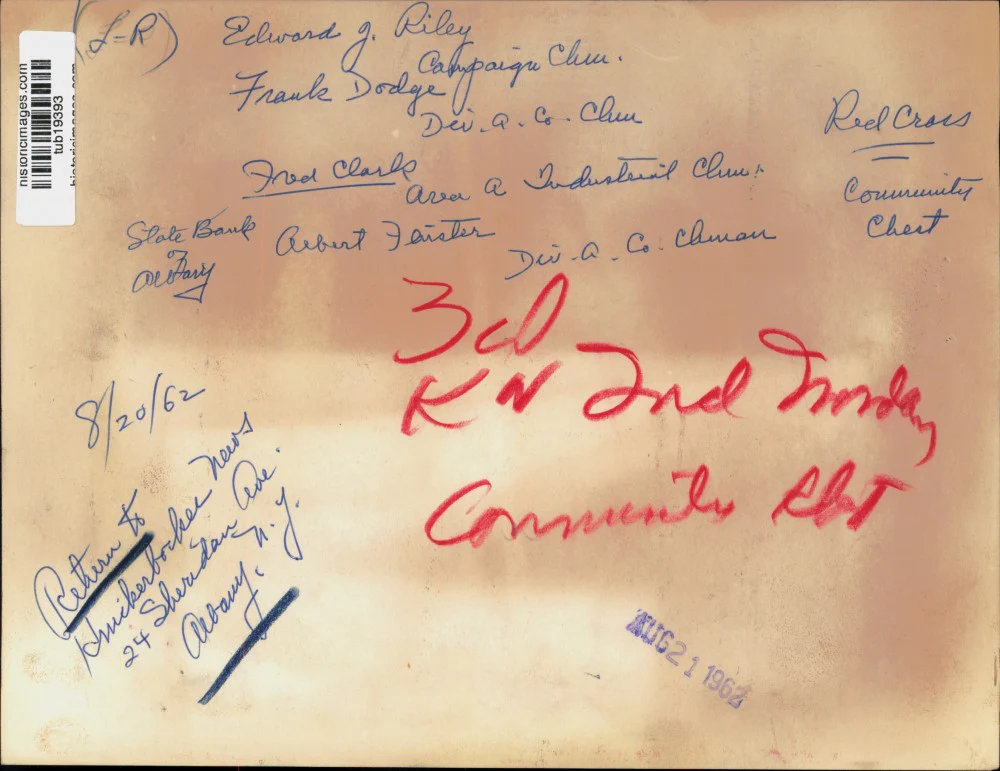 (L-R)
Edward J. Riley
Campaign Chm.
Frank Dodge
Div. A. Co. Chm
Fred Clark
Area A Industrial Chm.
State Bank
of
Albany
Albert
Div. A. Co. Chman
Red Cross
Community
Chest
3cl
KN 2nd Monday
Community
8/20/62
Return to
Knickerbocker News
24 Sheridan Ave.
Albany. N.Y.
AUG 21 1962
historicimages.com
tub19393
historicimages.com